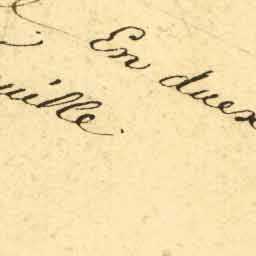 En duex
uille.